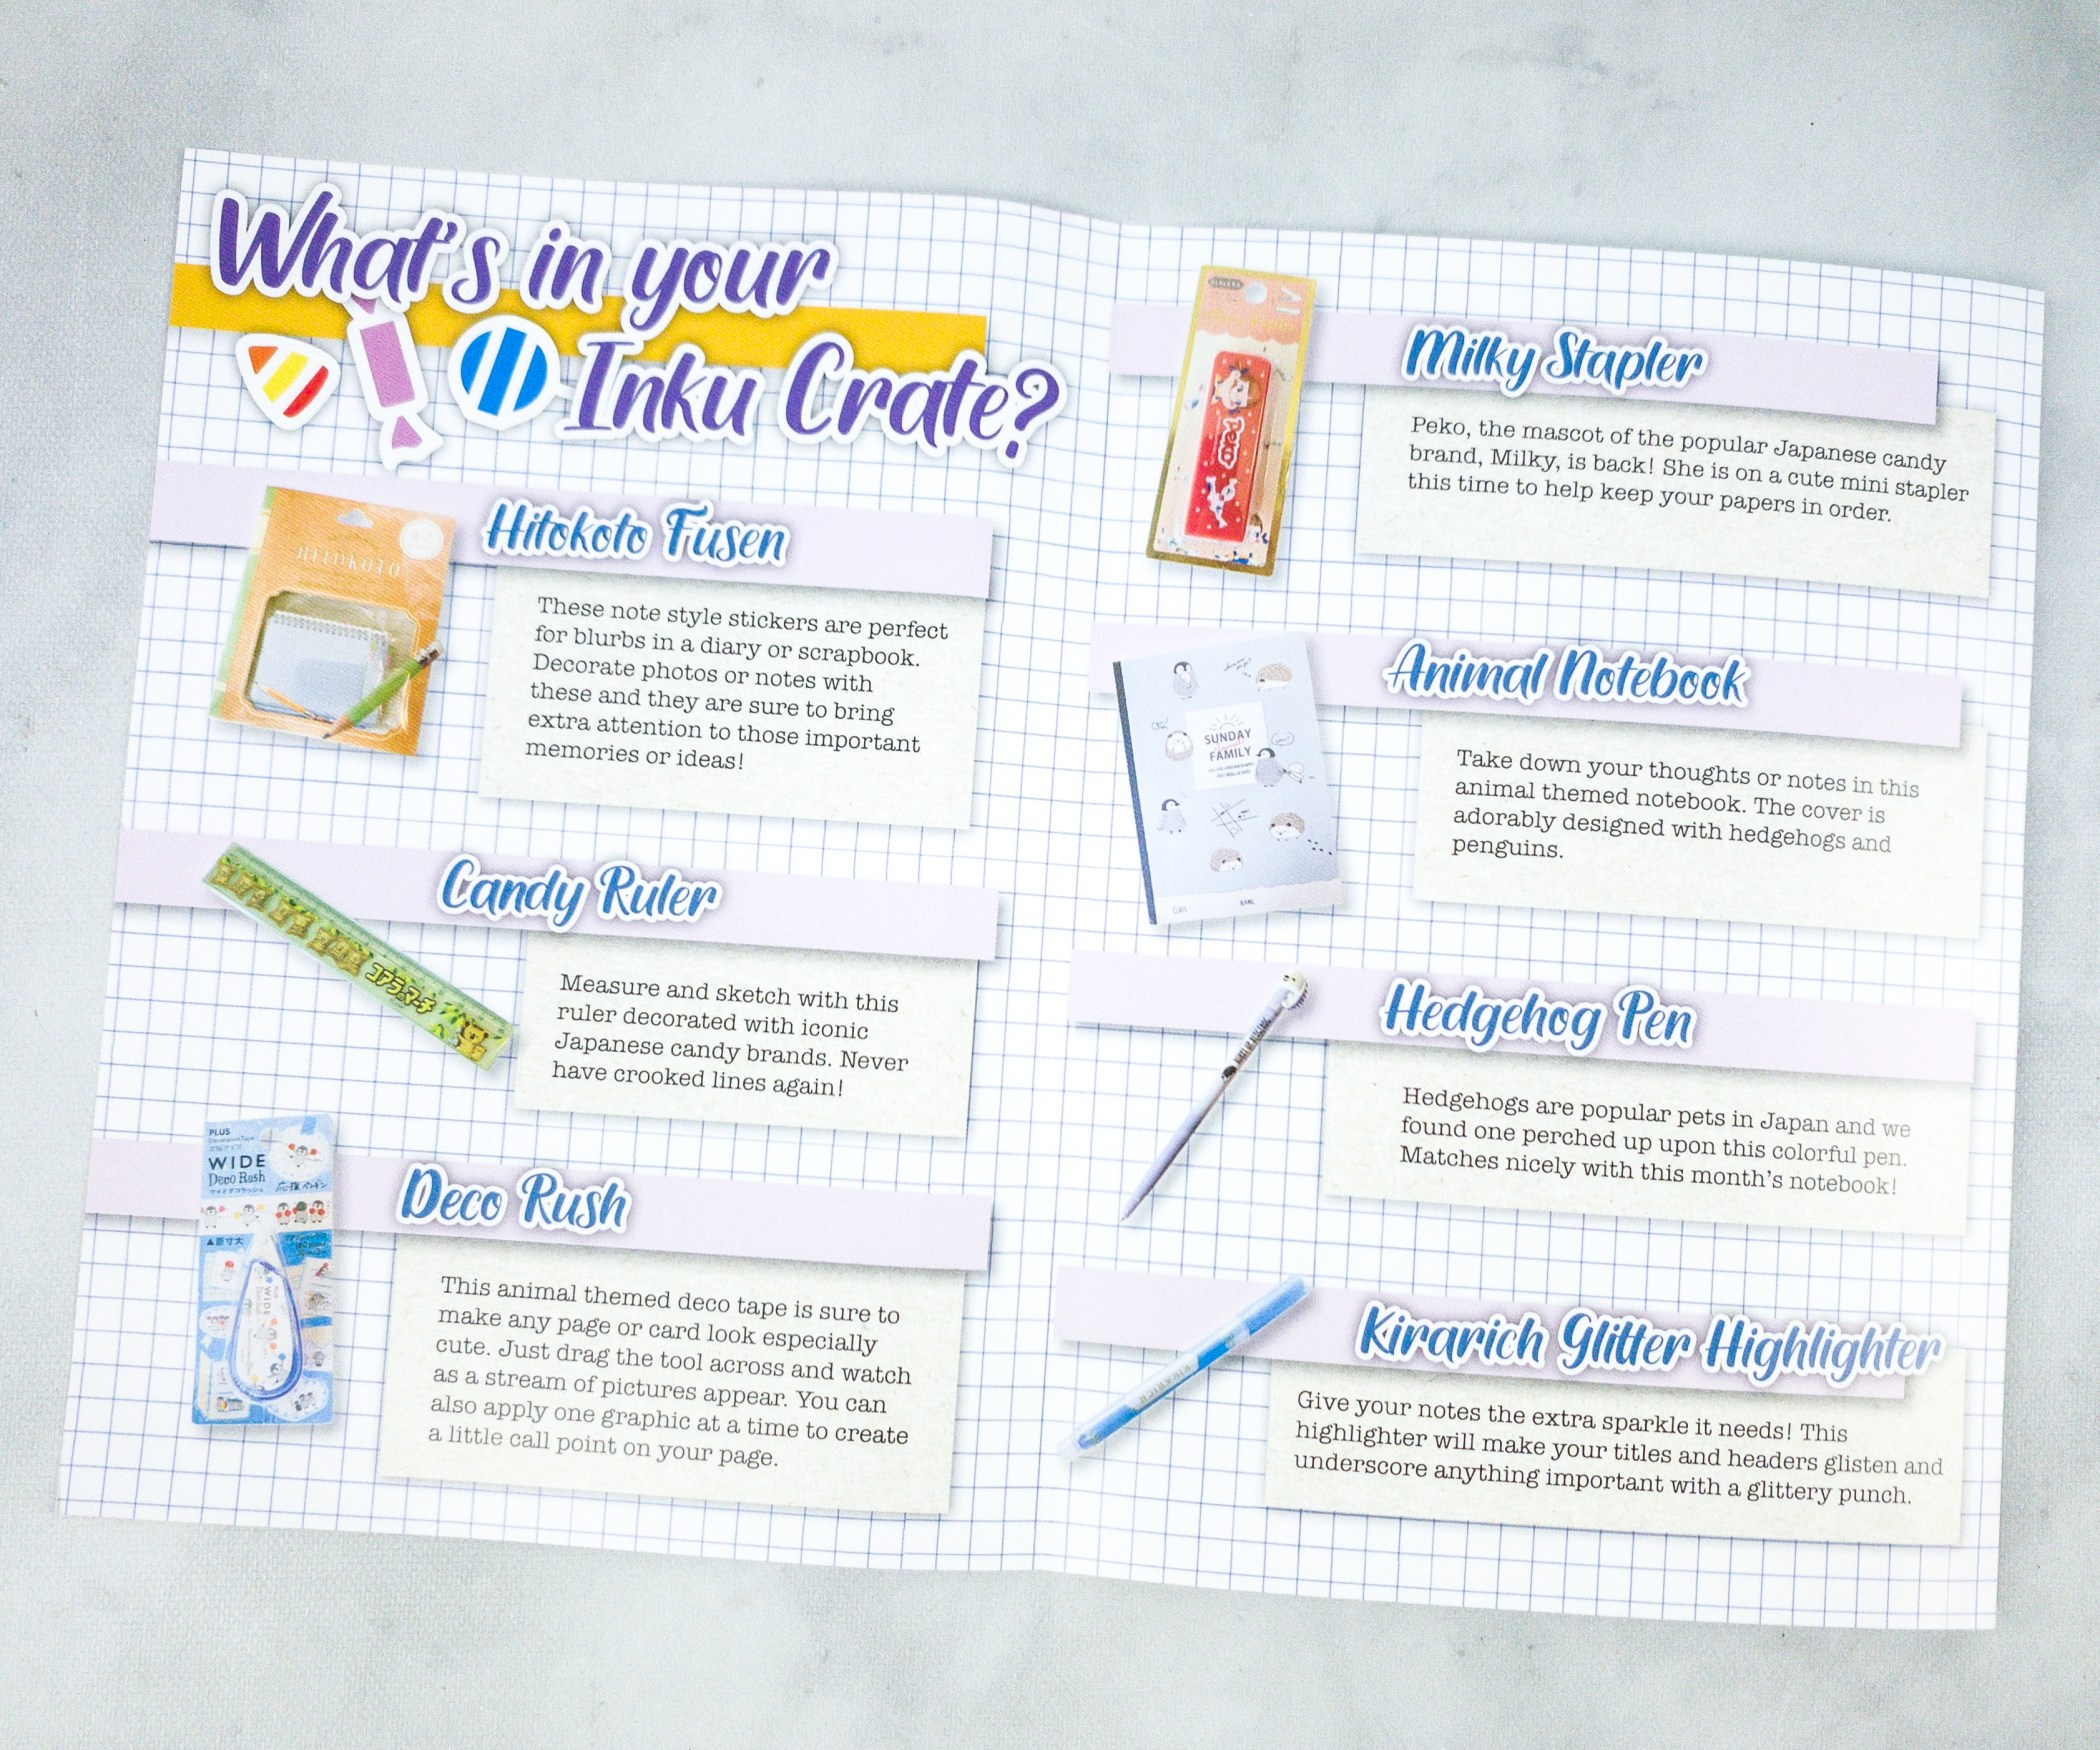 What's in your
Inku Crate?
Hitokoto Fusen
HITOKOTO
These note style stickers are perfect
for blurbs in a diary or scrapbook.
Decorate photos or notes with
these and they are sure to bring
extra attention to those important
memories or ideas!
Candy Ruler
コアラのマーチ
Measure and sketch with this
ruler decorated with iconic
Japanese candy brands. Never
have crooked lines again!
Deco Rush
PLUS
WIDE
Deco Rush
ワイドデコラッシュ
応援ペンギン
▲原寸大
WIDE
This animal themed deco tape is sure to
make any page or card look especially
cute. Just drag the tool across and watch
as a stream of pictures appear. You can
also apply one graphic at a time to create
a little call point on your page.
Milky Stapler
Peko
Peko, the mascot of the popular Japanese candy
brand, Milky, is back! She is on a cute mini stapler
this time to help keep your papers in order.
Animal Notebook
SUNDAY
FAMILY
CLASS
NAME
Take down your thoughts or notes in this
animal themed notebook. The cover is
adorably designed with hedgehogs and
penguins.
Hedgehog Pen
Hedgehogs are popular pets in Japan and we
found one perched up upon this colorful pen.
Matches nicely with this month's notebook!
Kirarich Glitter Highlighter
KIRARICH
Give your notes the extra sparkle it needs! This
highlighter will make your titles and headers glisten and
underscore anything important with a glittery punch.